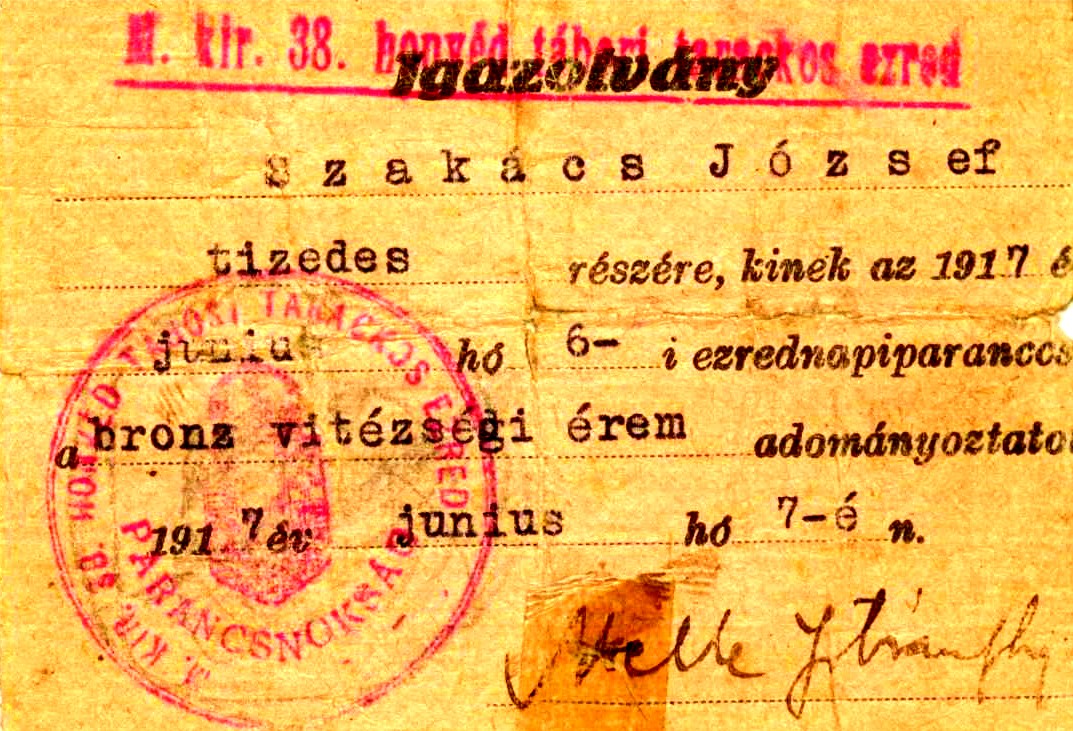 M. kir. 38. honvéd tábori tarackos ezred
Igazolvány
Szakács József
tizedes részére, kinek az 1917 é
junius hó 6- i ezrednapiparancs
a bronz vitézségi érem adományoztato
1917 év junius hó 7-é n.
M. KIR. 38. HONVÉD TÁBORI TARACKOS EZRED
PARANCSNOKSÁG